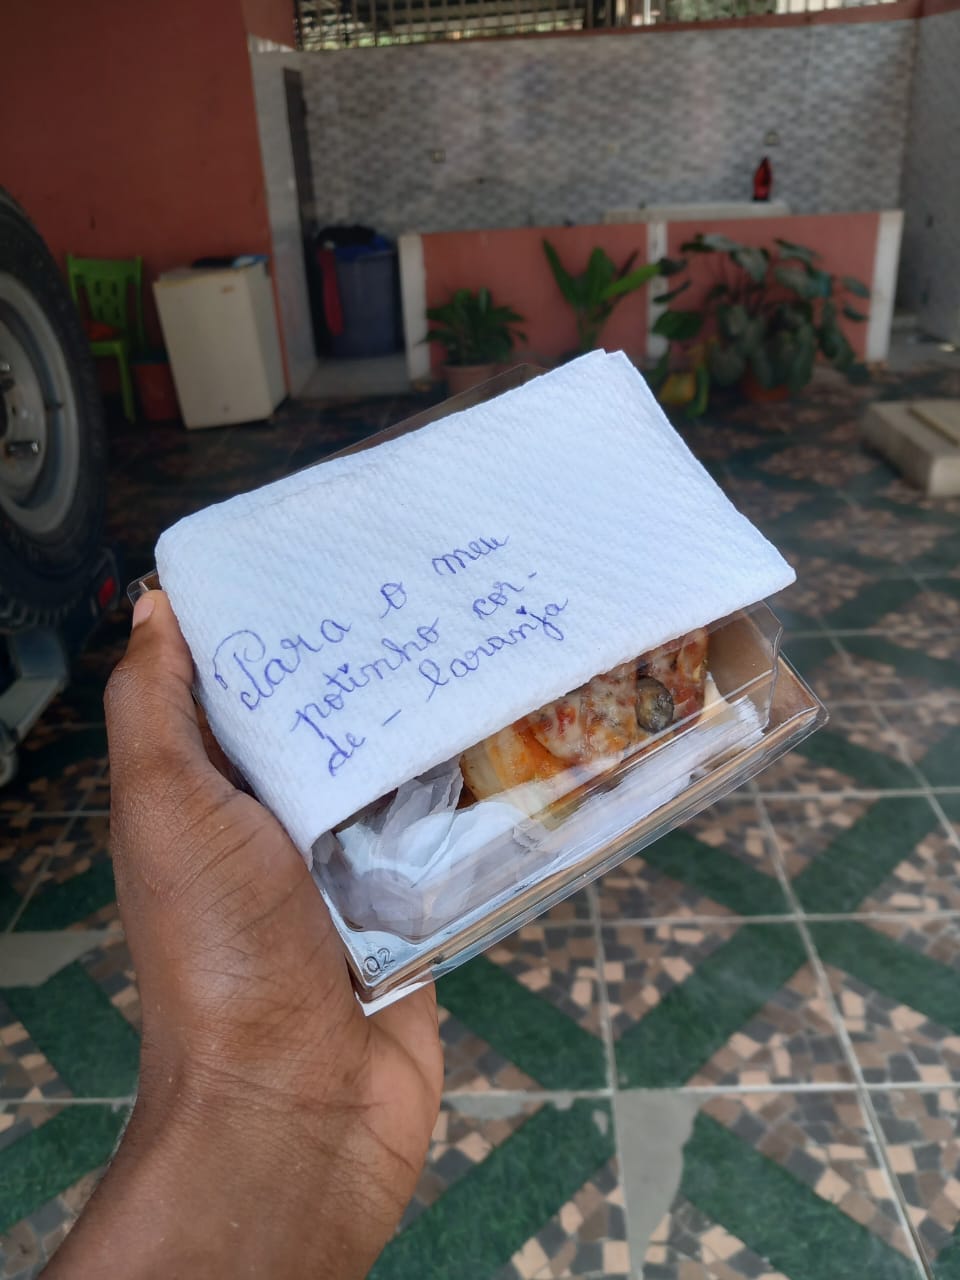 Para o meu
potinho cor-
de - laranja
Q2